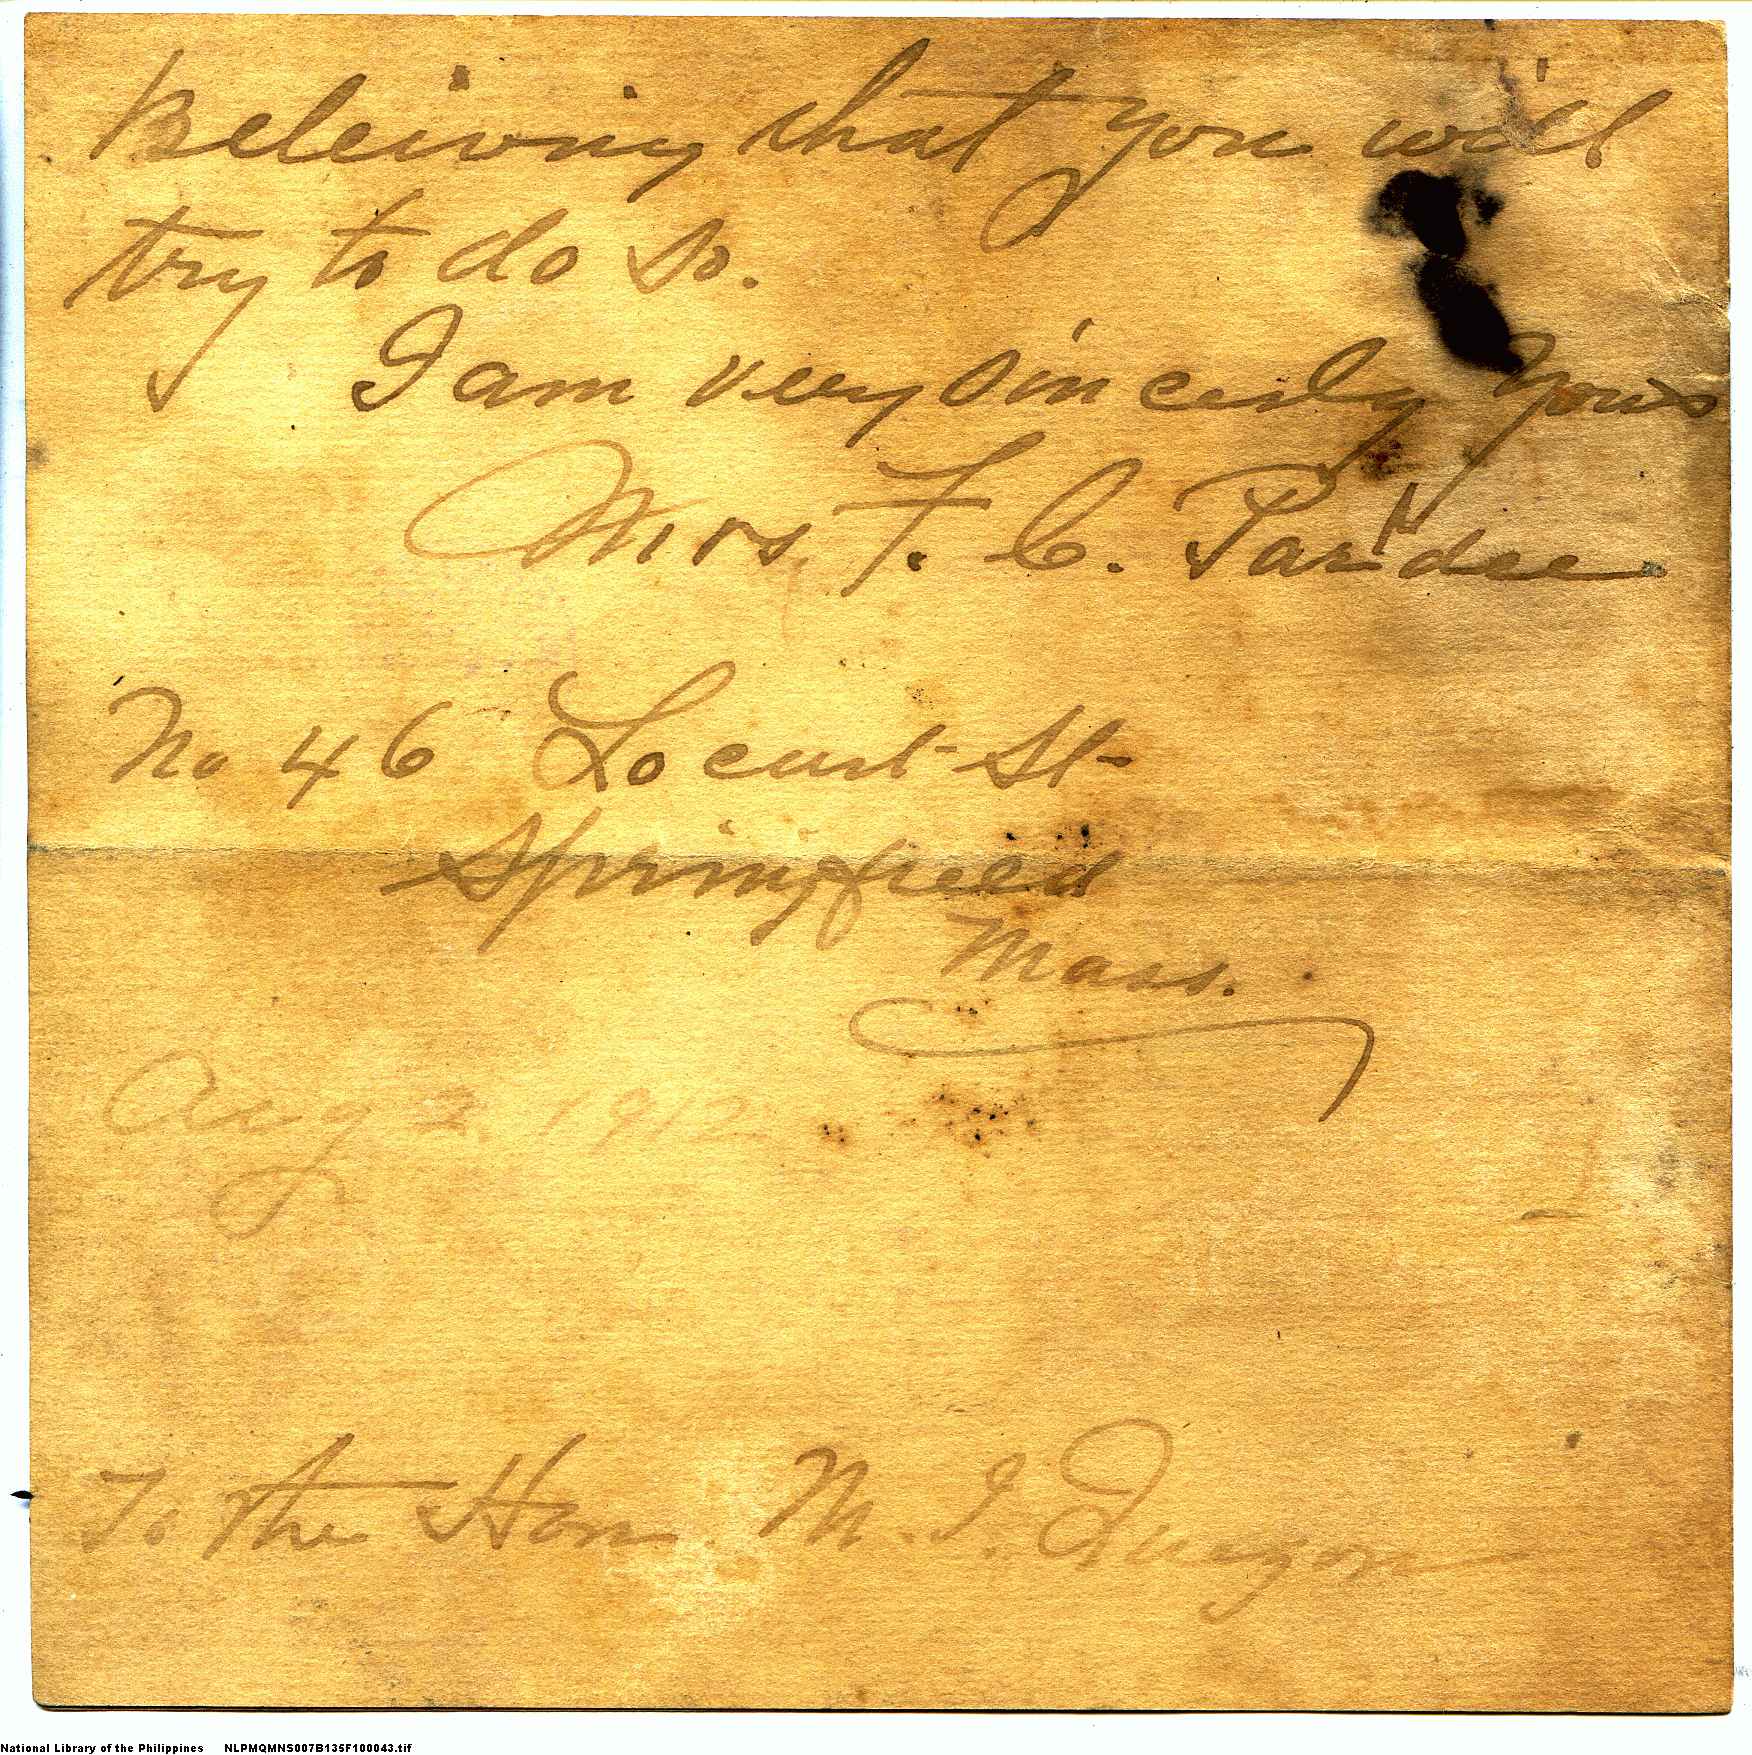 Beleiving that you will
try to do so.
I am very sincerly yours
Mrs. F. C. Pardee
No 46 Locust St
Springfield
Mass.
Aug 2. 1912
To the Hon. M. I. Quezon
National Library of the Philippines NLPMQMNS007B135F100043.tif